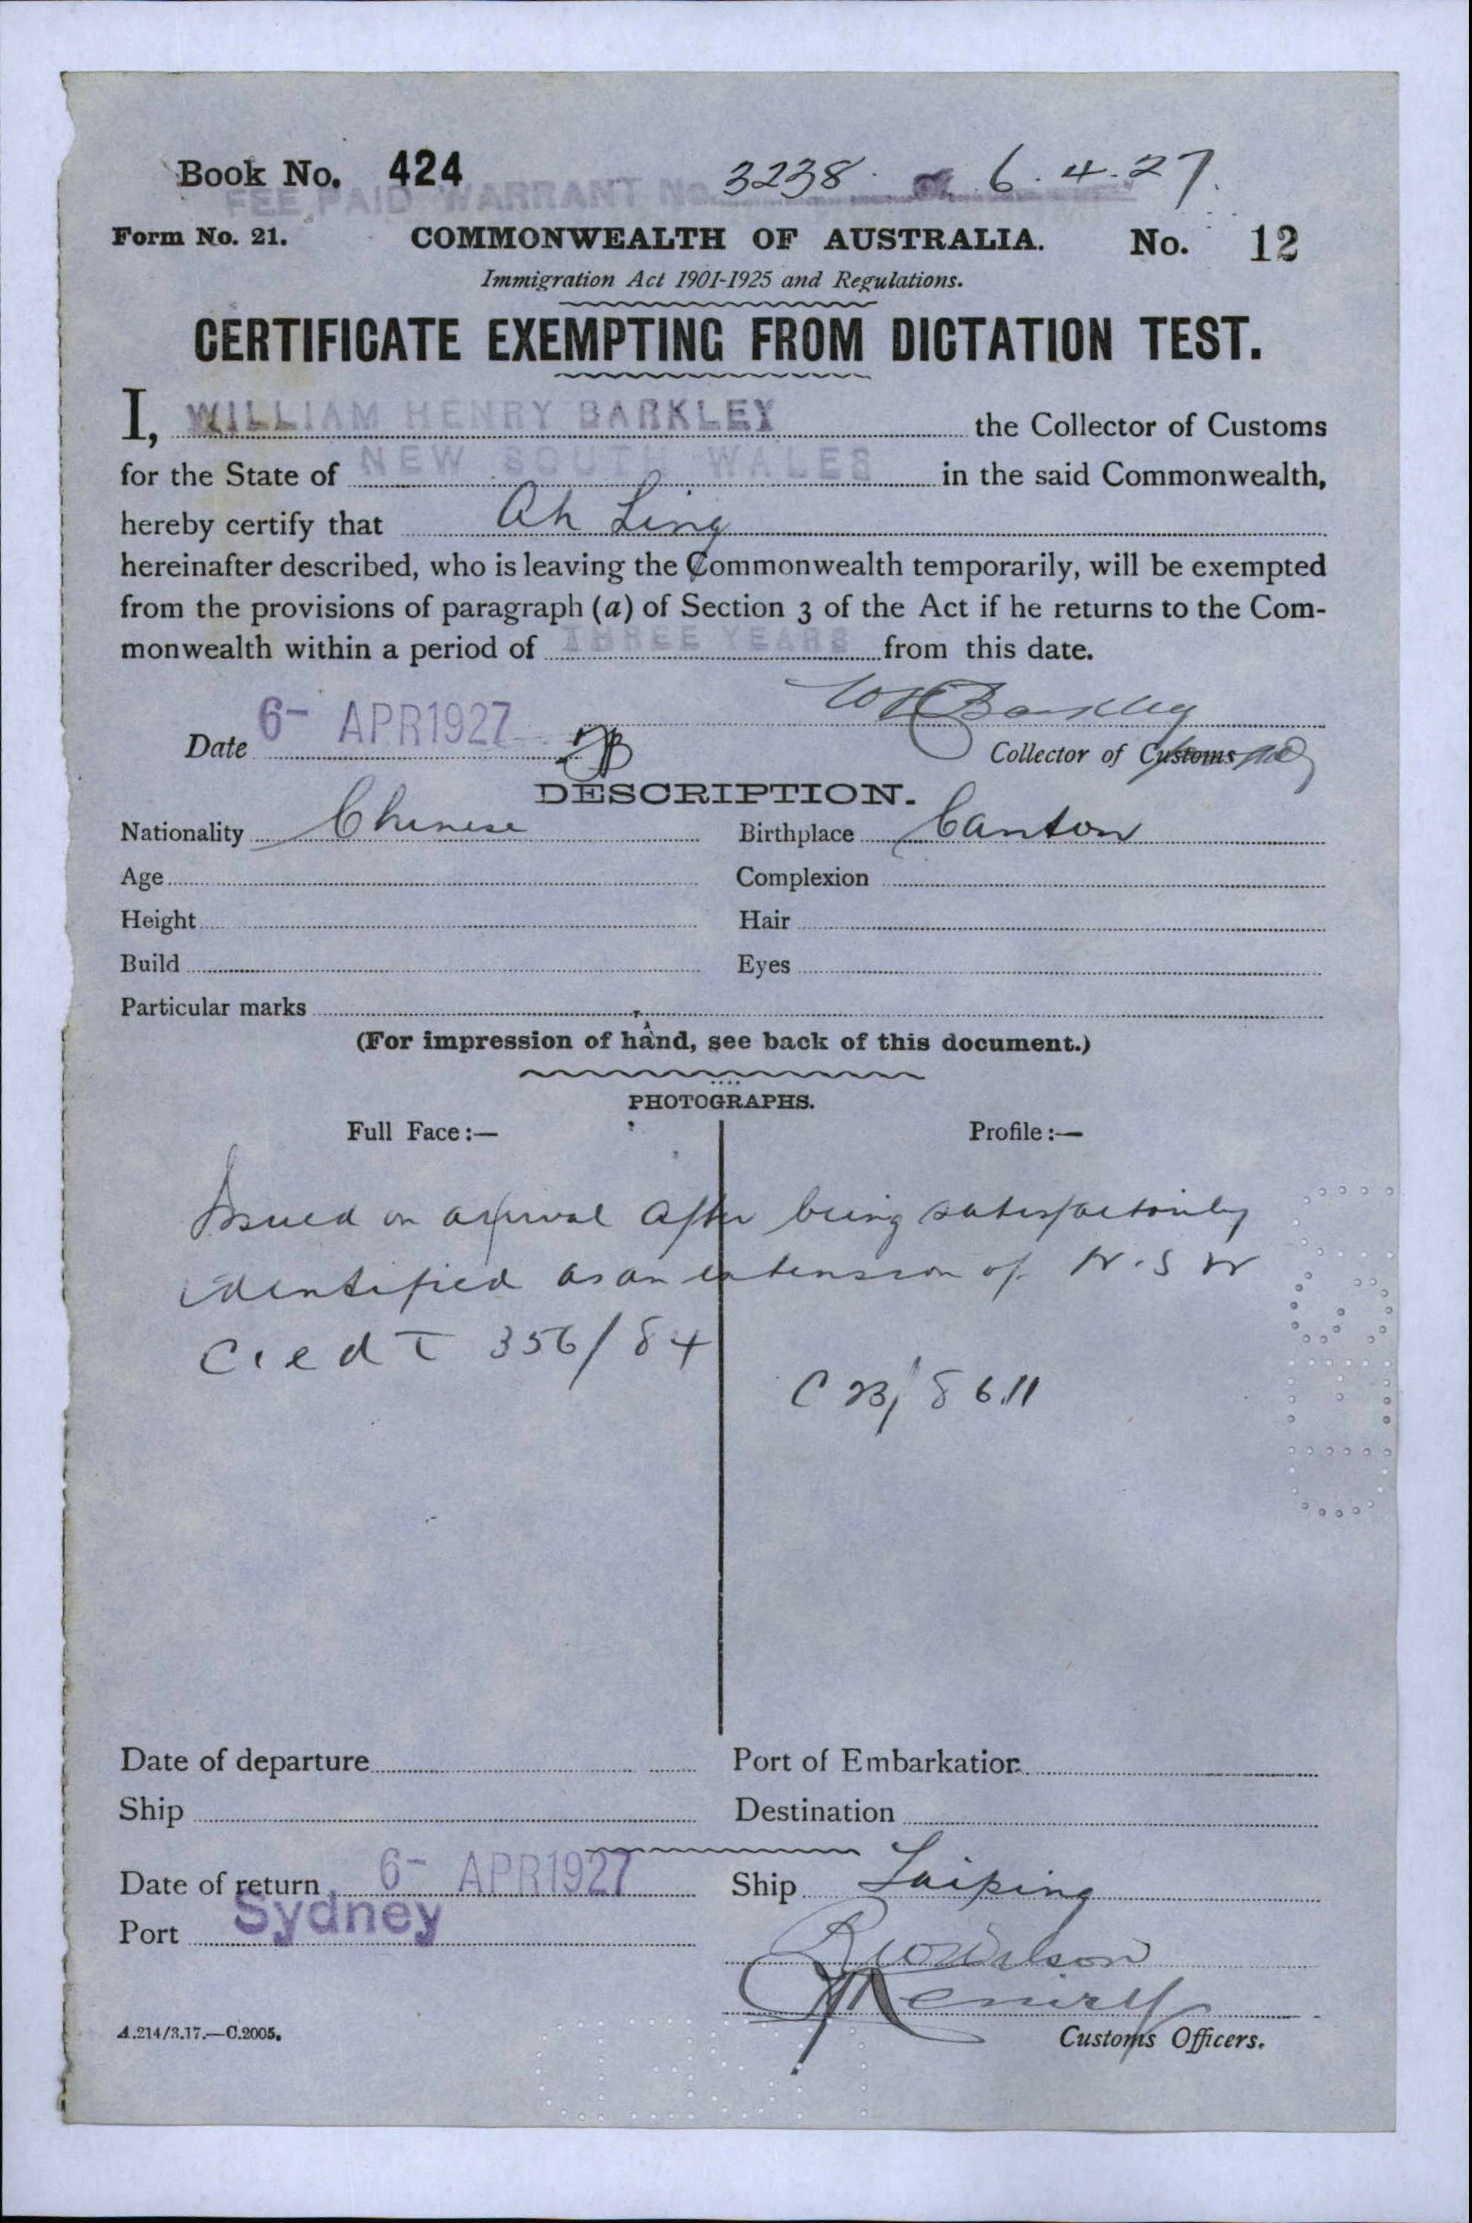 Book No. 424
FEE PAID WARRANT No. 3238 of 6.4.27.
Form No. 21. COMMONWEALTH OF AUSTRALIA. No. 12
Immigration Act 1901-1925 and Regulations.
CERTIFICATE EXEMPTING FROM DICTATION TEST.
I, WILLIAM HENRY BARKLEY the Collector of Customs
for the State of NEW SOUTH WALES in the said Commonwealth,
hereby certify that Ah Ling
hereinafter described, who is leaving the Commonwealth temporarily, will be exempted
from the provisions of paragraph (a) of Section 3 of the Act if he returns to the Com-
monwealth within a period of THREE YEARS from this date.
W H Barkley
Date 6- APR 1927
Collector of Customs
DESCRIPTION.
Nationality Chinese Birthplace Canton
Age Complexion
Height Hair
Build Eyes
Particular marks
(For impression of hand, see back of this document.)
PHOTOGRAPHS.
Full Face:— Profile:—
Issued on arrival after being satisfactorily
identified as an extension of N.S.W
C.e d T 356/84
C 23/8611
Date of departure Port of Embarkation
Ship Destination
Date of return 6- APR 1927 Ship Taiping
Port Sydney
Wilson
Customs Officers.
A.214/3.17.—C.2005.